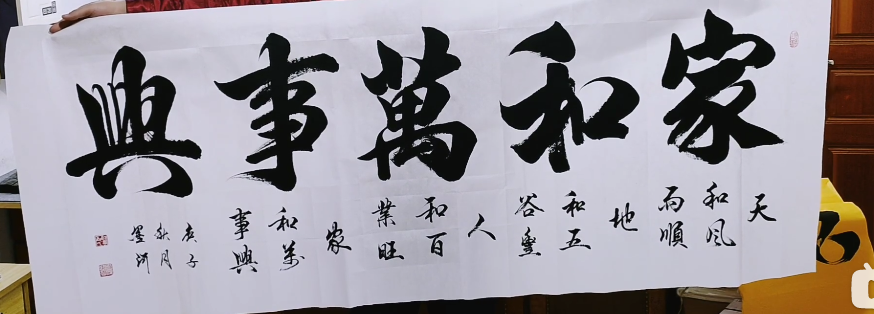 家和萬事興
天
和風
雨順
地
和五
谷豐
人
和百
業旺
家
和萬
事興
庚子
秋月